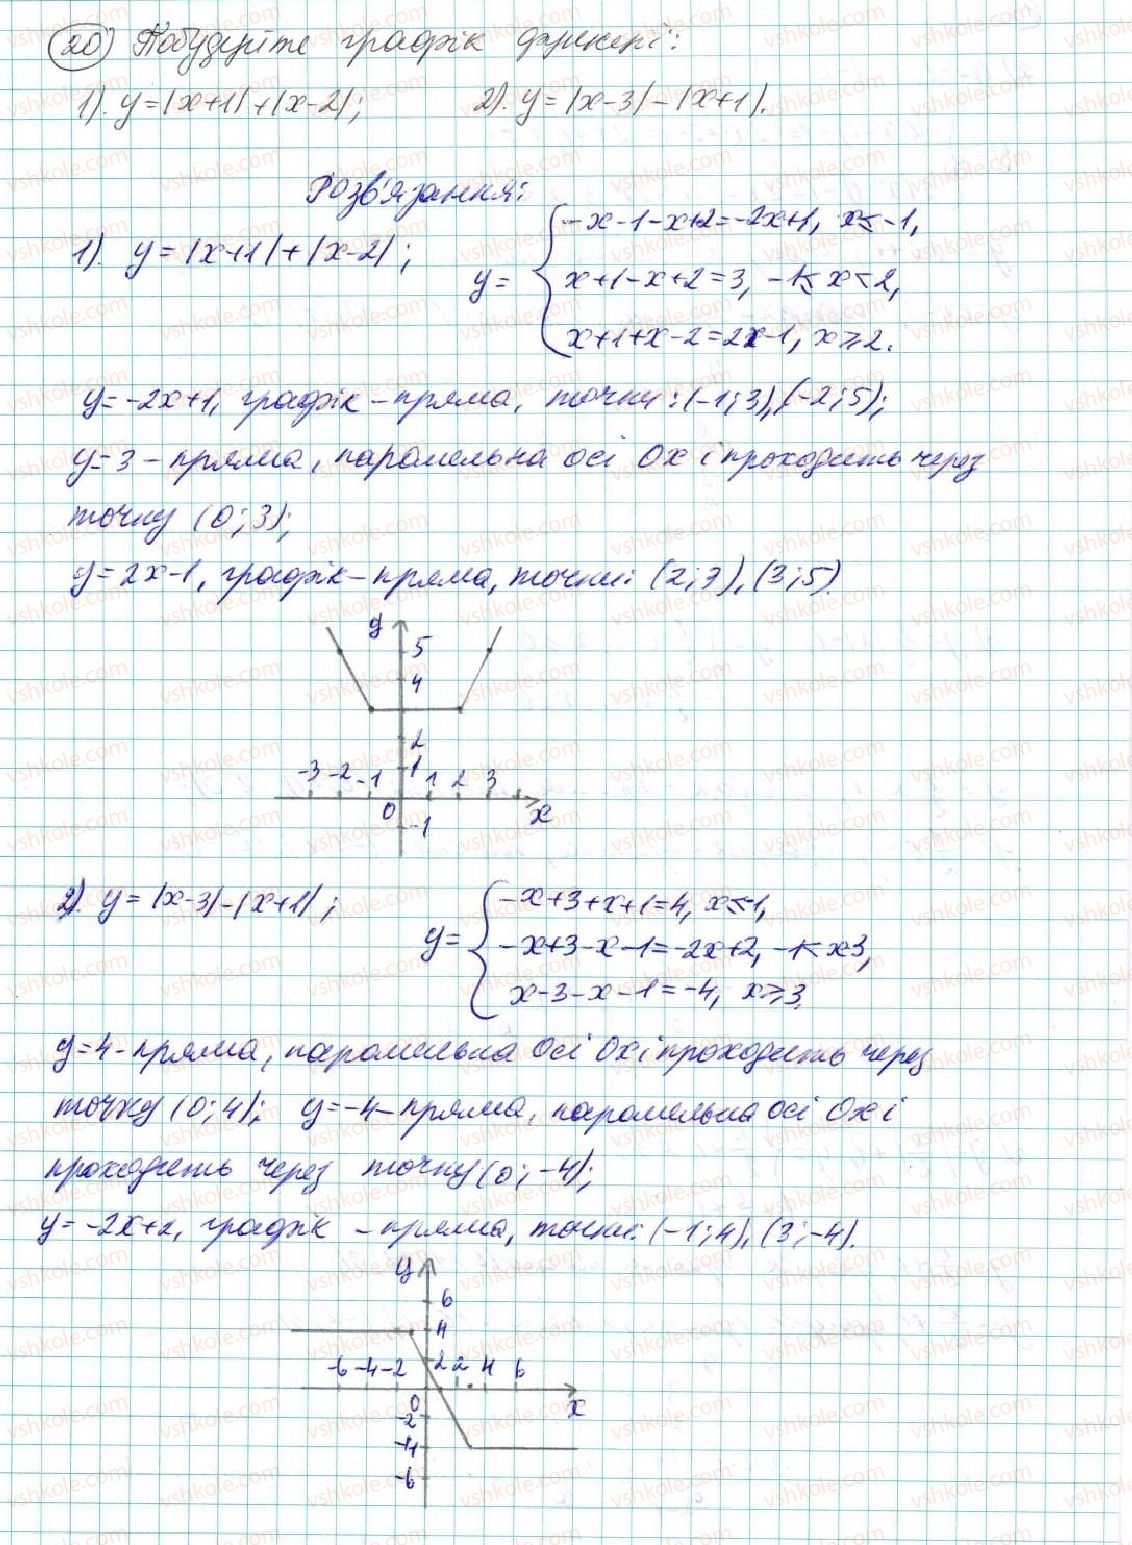 20) Побудуйте графік функції:
1). y=|x+1|+|x-2|; 2). y=|x-3|-|x+1|.
Розв'язання:
1). y=|x+1|+|x-2|;
y= { -x-1-x+2=-2x+1, x≤-1,
x+1-x+2=3, -1≤x<2,
x+1+x-2=2x-1, x≥2.
y=-2x+1, графік - пряма, точки: (-1;3),(-2;5);
y=3 - пряма, паралельна осі Ox і проходить через
точку (0;3);
y=2x-1, графік - пряма, точки: (2;3), (3;5).
y
5
4
2
1
-3 -2 -1 1 2 3
0 x
-1
2). y=|x-3|-|x+1|;
y= { -x+3+x+1=4, x≤-1,
-x+3-x-1=-2x+2, -1<x3,
x-3-x-1=-4, x≥3.
y=4 - пряма, паралельна осі Ox і проходить через
точку (0;4); y=-4 - пряма, паралельна осі Ox і
проходить через точку (0;-4);
y=-2x+2, графік - пряма, точки: (-1;4), (3;-4).
y
6
4
-6 -4 -2 2 2 4 6
0 x
-2
-4
-6